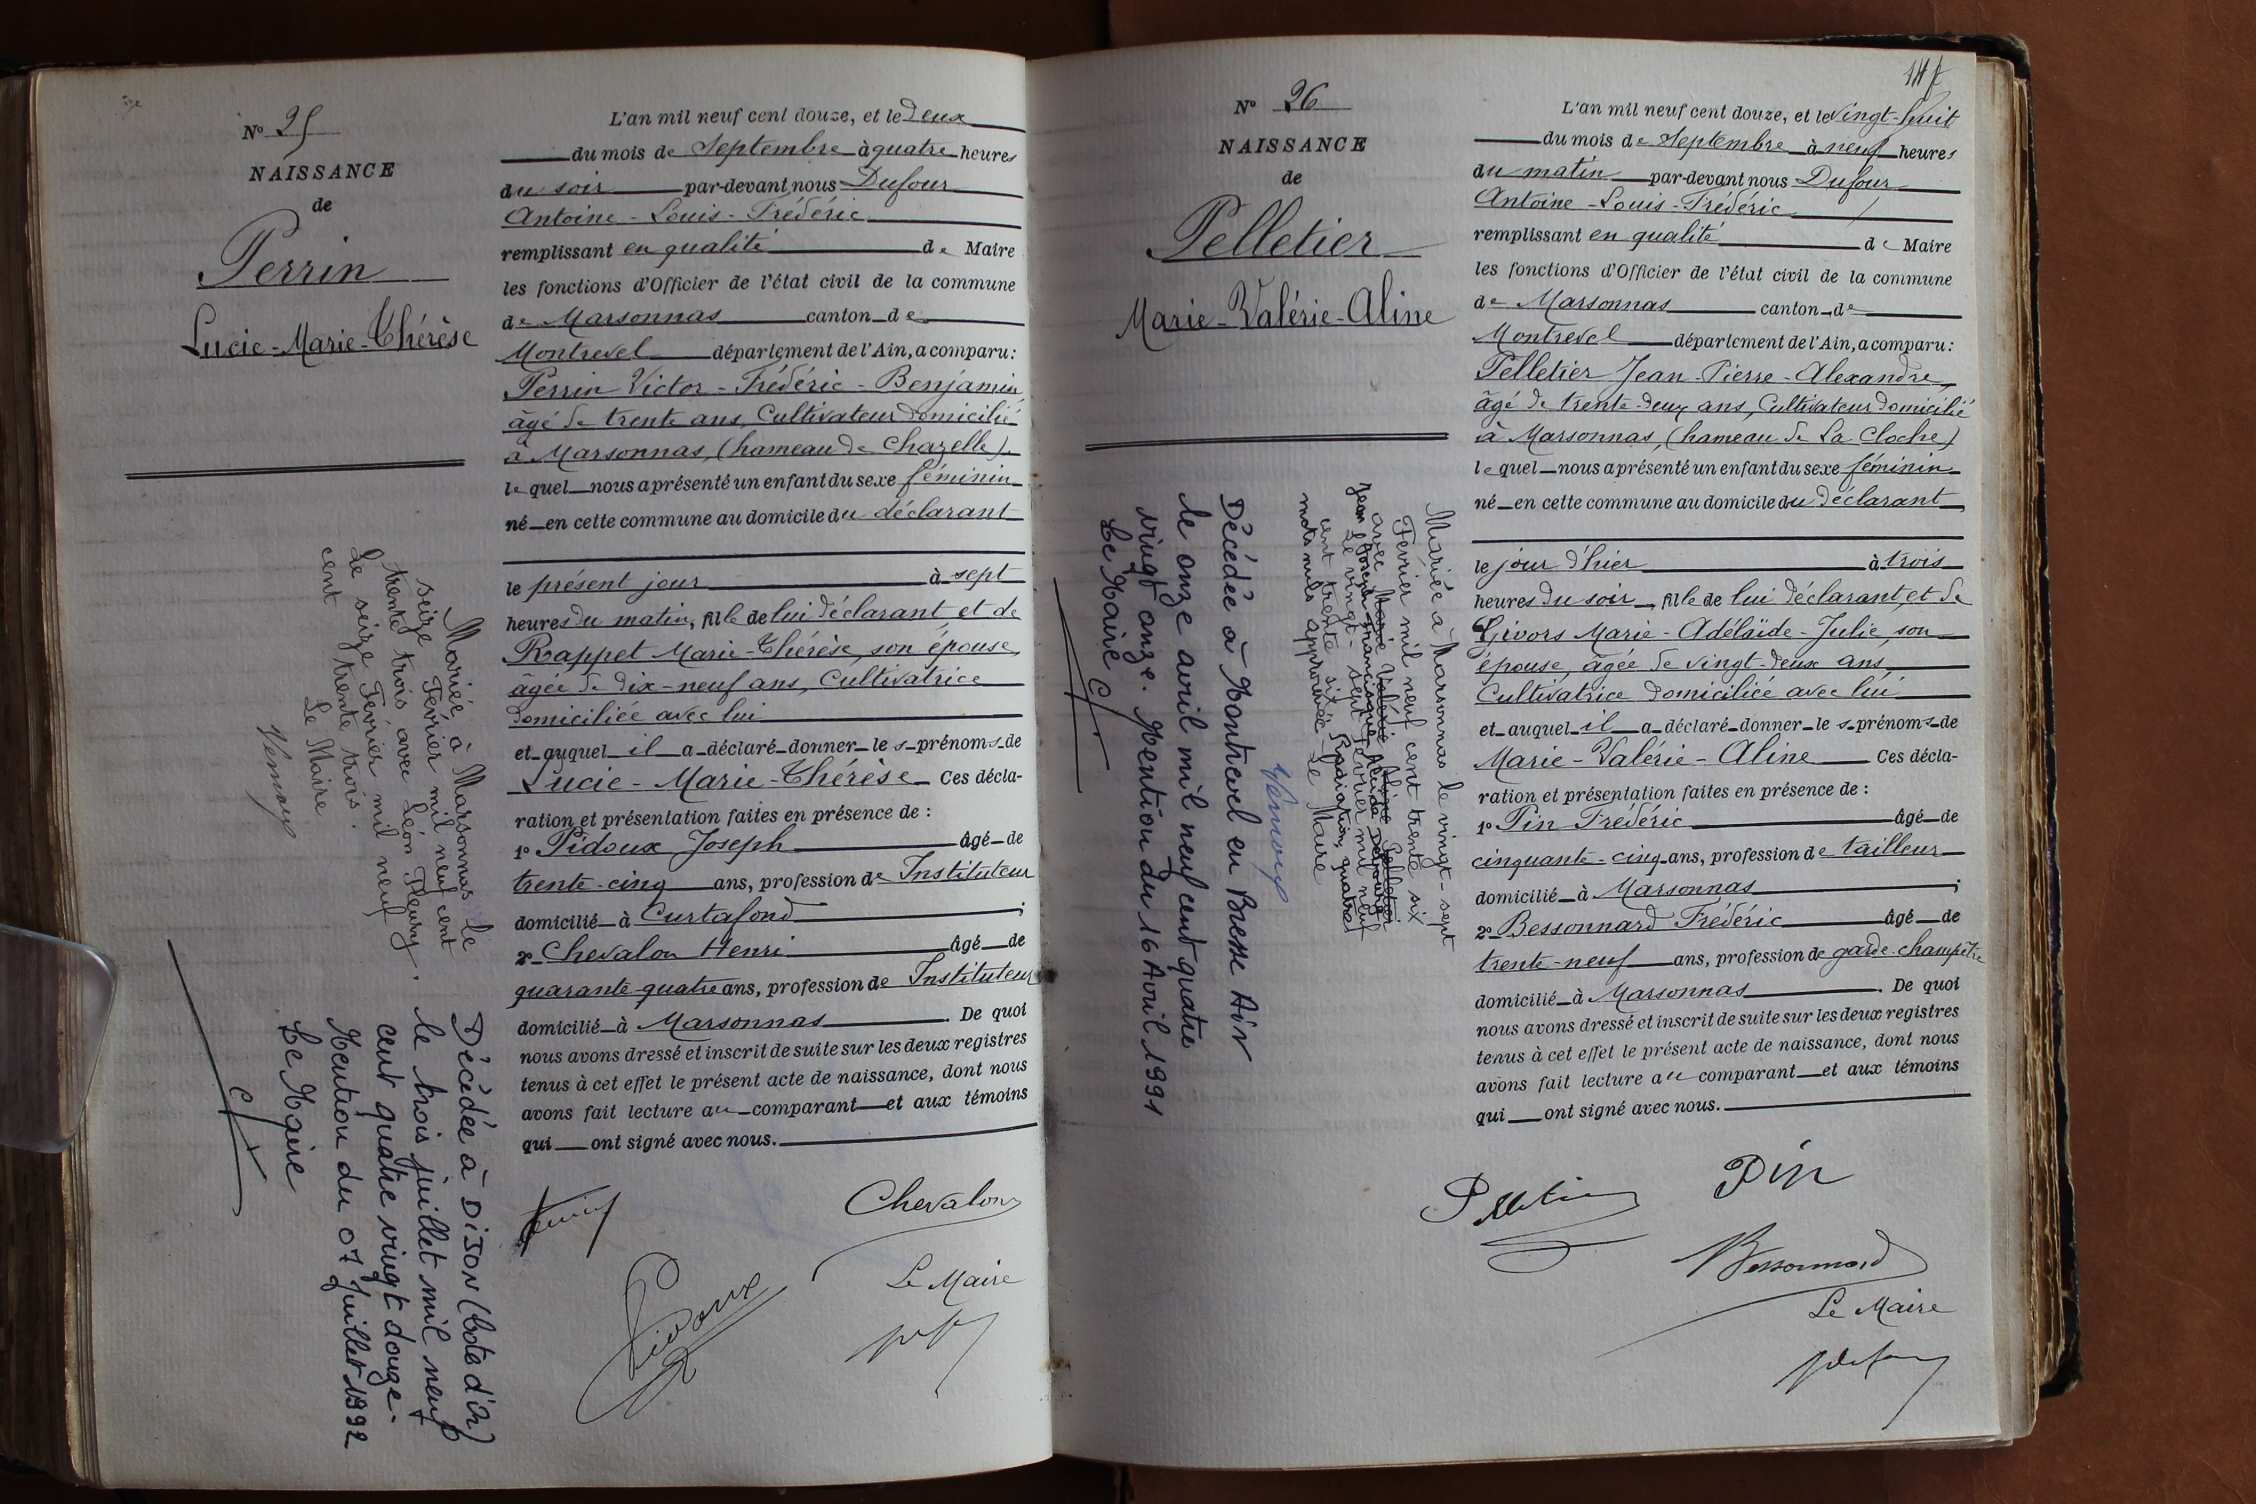 N° 25
NAISSANCE
de
Perrin
Lucie-Marie-Thérèse
Mariée à Marsonnas le
seize Février mil neuf cent
trente trois avec Léon Fleury.
Le seize Février mil neuf
cent trente trois.
Le Maire
Décédée à DIJON (Cote d'Or)
le trois juillet mil neuf
cent quatre vingt douze.
Mention du 07 Juillet 1992
Le Maire
L'an mil neuf cent douze, et le Deux
du mois de Septembre à quatre heures
du soir par-devant nous Dufour
Antoine-Louis-Frédéric
remplissant en qualité de Maire
les fonctions d'Officier de l'état civil de la commune
de Marsonnas canton de
Montrevel département de l'Ain, a comparu:
Perrin Victor-Frédéric-Benjamin
âgé de trente ans, Cultivateur domicilié
à Marsonnas, (hameau de Chazelle)
lequel nous a présenté un enfant du sexe féminin
né en cette commune au domicile du déclarant
le présent jour à sept
heures du matin, fille de lui déclarant, et de
Rappet Marie-Thérèse, son épouse,
âgée de dix-neuf ans, Cultivatrice
domiciliée avec lui
et auquel il a déclaré donner les prénoms de
Lucie-Marie-Thérèse Ces décla-
ration et présentation faites en présence de :
1° Pidoux Joseph âgé de
trente-cinq ans, profession de Instituteur
domicilié à Curtafond ;
2° Chevalon Henri âgé de
quarante-quatre ans, profession de Instituteur
domicilié à Marsonnas. De quoi
nous avons dressé et inscrit de suite sur les deux registres
tenus à cet effet le présent acte de naissance, dont nous
avons fait lecture au comparant et aux témoins
qui ont signé avec nous.
Chevalon
Pidoux
Le Maire
147
N° 26
NAISSANCE
de
Pelletier
Marie-Valérie-Aline
Mariée à Marsonnas le vingt-sept
Février mil neuf cent trente six
avec Marie Valérie Aline Pelletier
Le vingt-sept Février mil neuf
cent trente six. quatre
mots nuls approuvés Le Maire
Décédée à Montrevel en Bresse Ain
le onze avril mil neuf cent quatre
vingt onze. Mention du 16 Avril 1991
Le Maire
L'an mil neuf cent douze, et le Vingt-huit
du mois de Septembre à neuf heures
du matin par-devant nous Dufour
Antoine-Louis-Frédéric
remplissant en qualité de Maire
les fonctions d'Officier de l'état civil de la commune
de Marsonnas canton de
Montrevel département de l'Ain, a comparu:
Pelletier Jean-Pierre-Alexandre,
âgé de trente-deux ans, Cultivateur domicilié
à Marsonnas, (hameau de La Cloche)
lequel nous a présenté un enfant du sexe féminin
né en cette commune au domicile du déclarant
le jour d'hier à trois
heures du soir, fille de lui déclarant, et de
Givors Marie-Adélaïde-Julie, son
épouse, âgée de vingt-deux ans,
Cultivatrice domiciliée avec lui
et auquel il a déclaré donner les prénoms de
Marie-Valérie-Aline Ces décla-
ration et présentation faites en présence de :
1° Pin Frédéric âgé de
cinquante-cinq ans, profession de tailleur
domicilié à Marsonnas ;
2° Bessonnard Frédéric âgé de
trente-neuf ans, profession de garde-champêtre
domicilié à Marsonnas. De quoi
nous avons dressé et inscrit de suite sur les deux registres
tenus à cet effet le présent acte de naissance, dont nous
avons fait lecture au comparant et aux témoins
qui ont signé avec nous.
Pelletier
Pin
Bessonnard
Le Maire